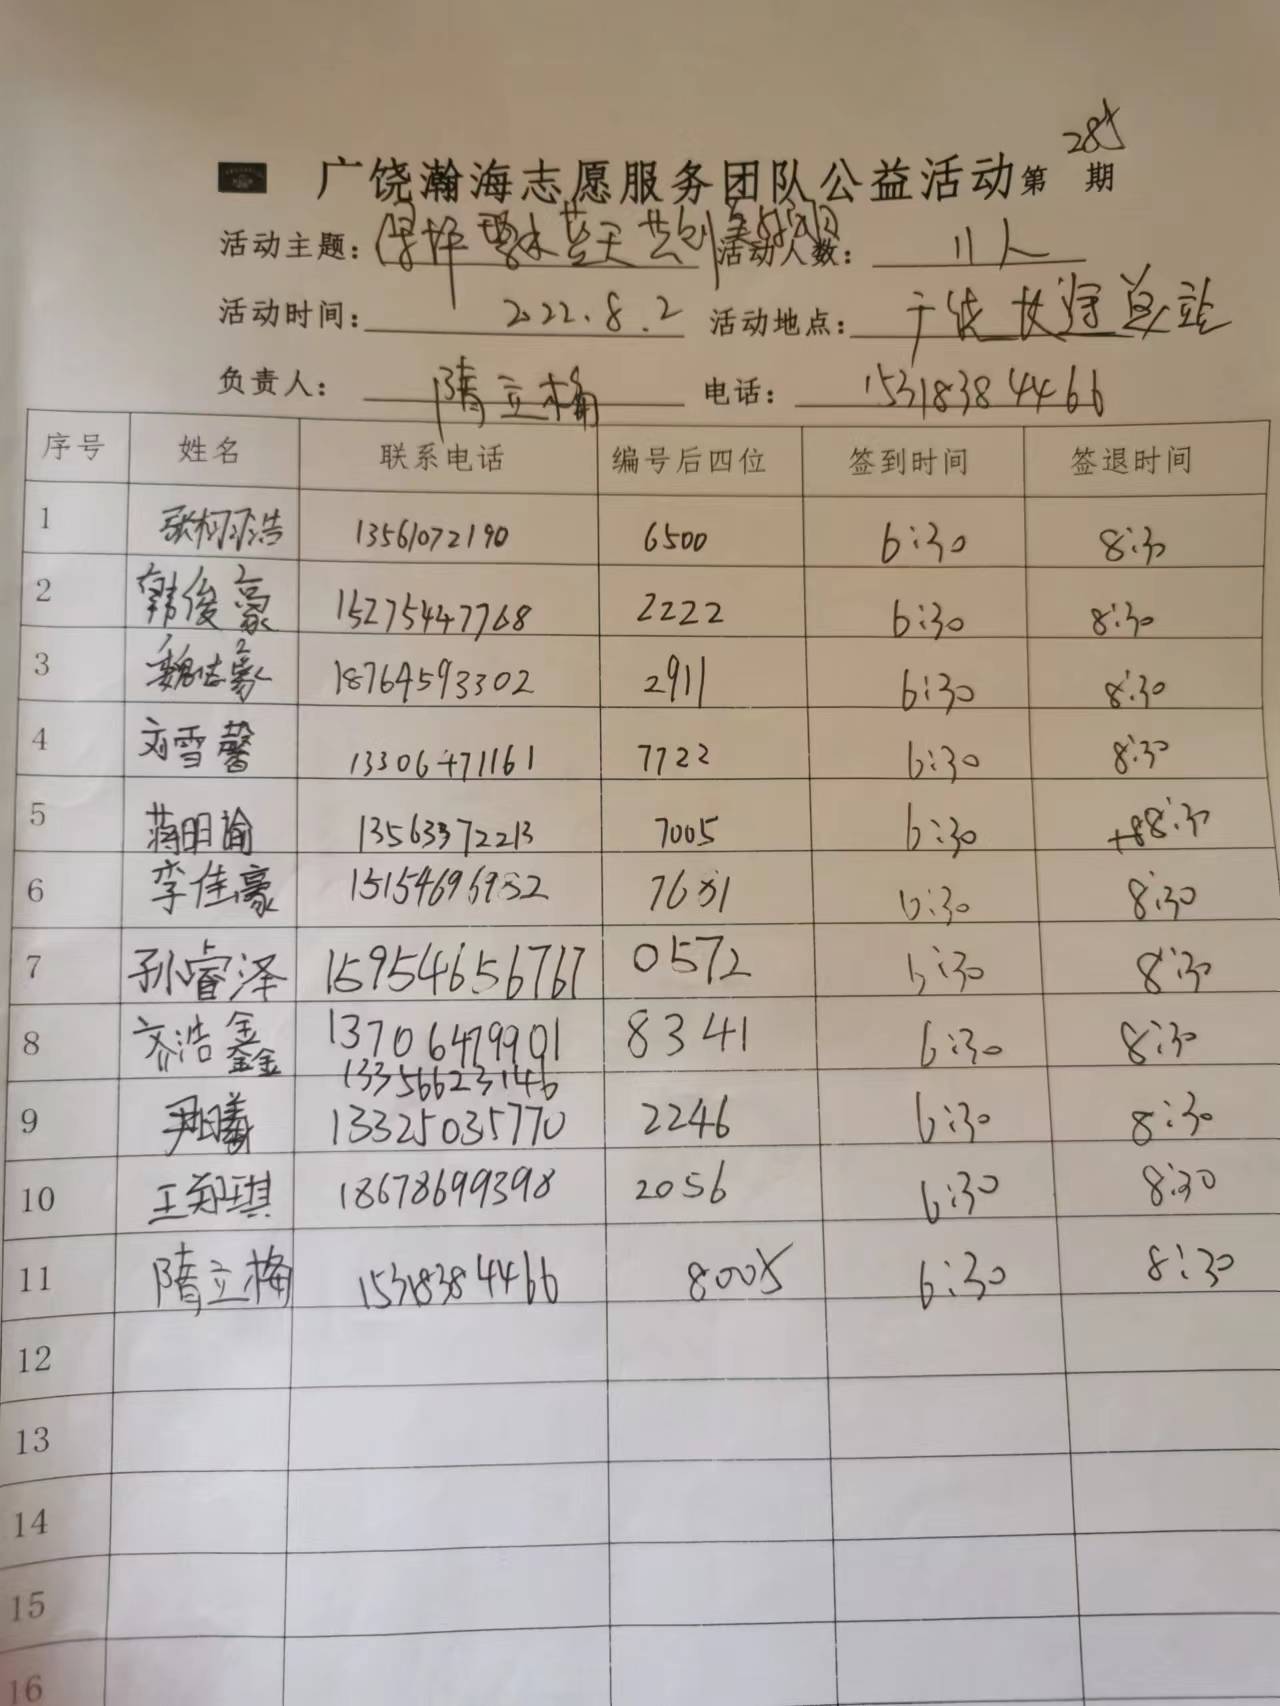 285
广饶瀚海志愿服务团队公益活动第 期
活动主题：保护碧水蓝天共创美好家园 活动人数： 11人
活动时间： 2022.8.2 活动地点：
负责人： 隋立梅 电话： 15318384466
序号 姓名 联系电话 编号后四位 签到时间 签退时间
1 张柯浩 13561072190 6500 6:30 8:30
2 韩俊豪 15275447768 2222 6:30 8:30
3 魏志豪 18764593302 2911 6:30 8:30
4 刘雪馨 13306471161 7722 6:30 8:30
5 蒋明瑜 13563372213 7005 6:30 8:30
6 李佳豪 15154696952 7681 6:30 8:30
7 孙睿泽 15954656767 0572 6:30 8:30
8 齐浩鑫 13706479901 8341 6:30 8:30
13356623146
9 尹曦 13325035770 2246 6:30 8:30
10 王郑琪 18678699398 2056 6:30 8:30
11 隋立梅 15318384466 8005 6:30 8:30
12
13
14
15
16